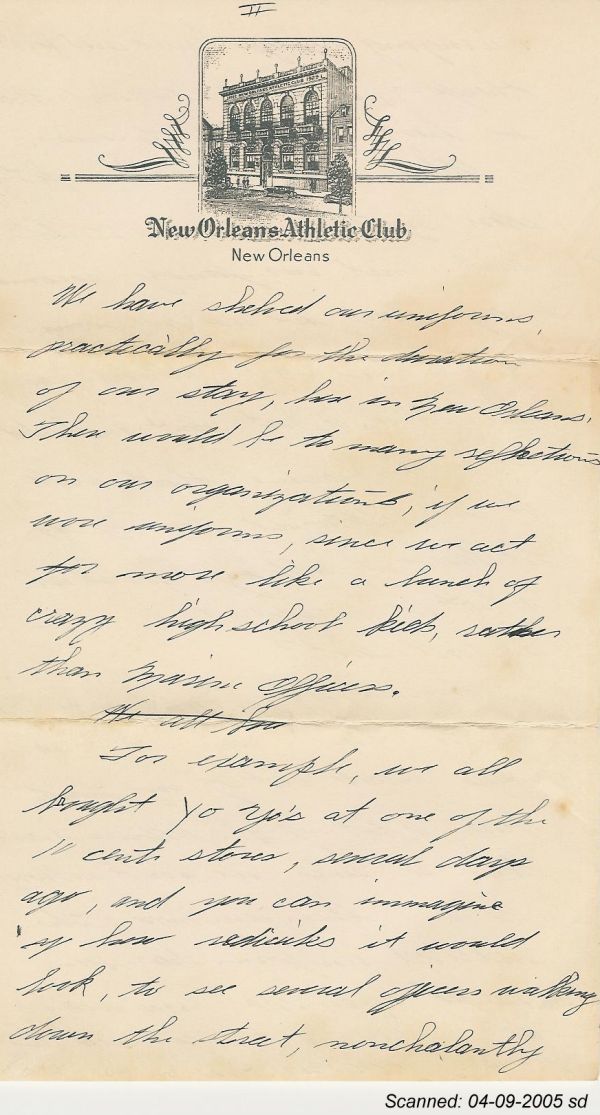 II
New Orleans Athletic Club
New Orleans
We have shelved our uniforms,
practically for the duration
of our stay, here in New Orleans.
There would be to many reflections
on our organizations, if we
wore uniforms, since we act
far more like a bunch of
crazy high school kids, rather
than Marine Officers.
We all
For example, we all
bought Yo Yo's at one of the
10 cents stores, several days
ago, and you can immagine
how rediculs it would
look, to see several officers walking
down the street, nonchalantly
Scanned: 04-09-2005 sd